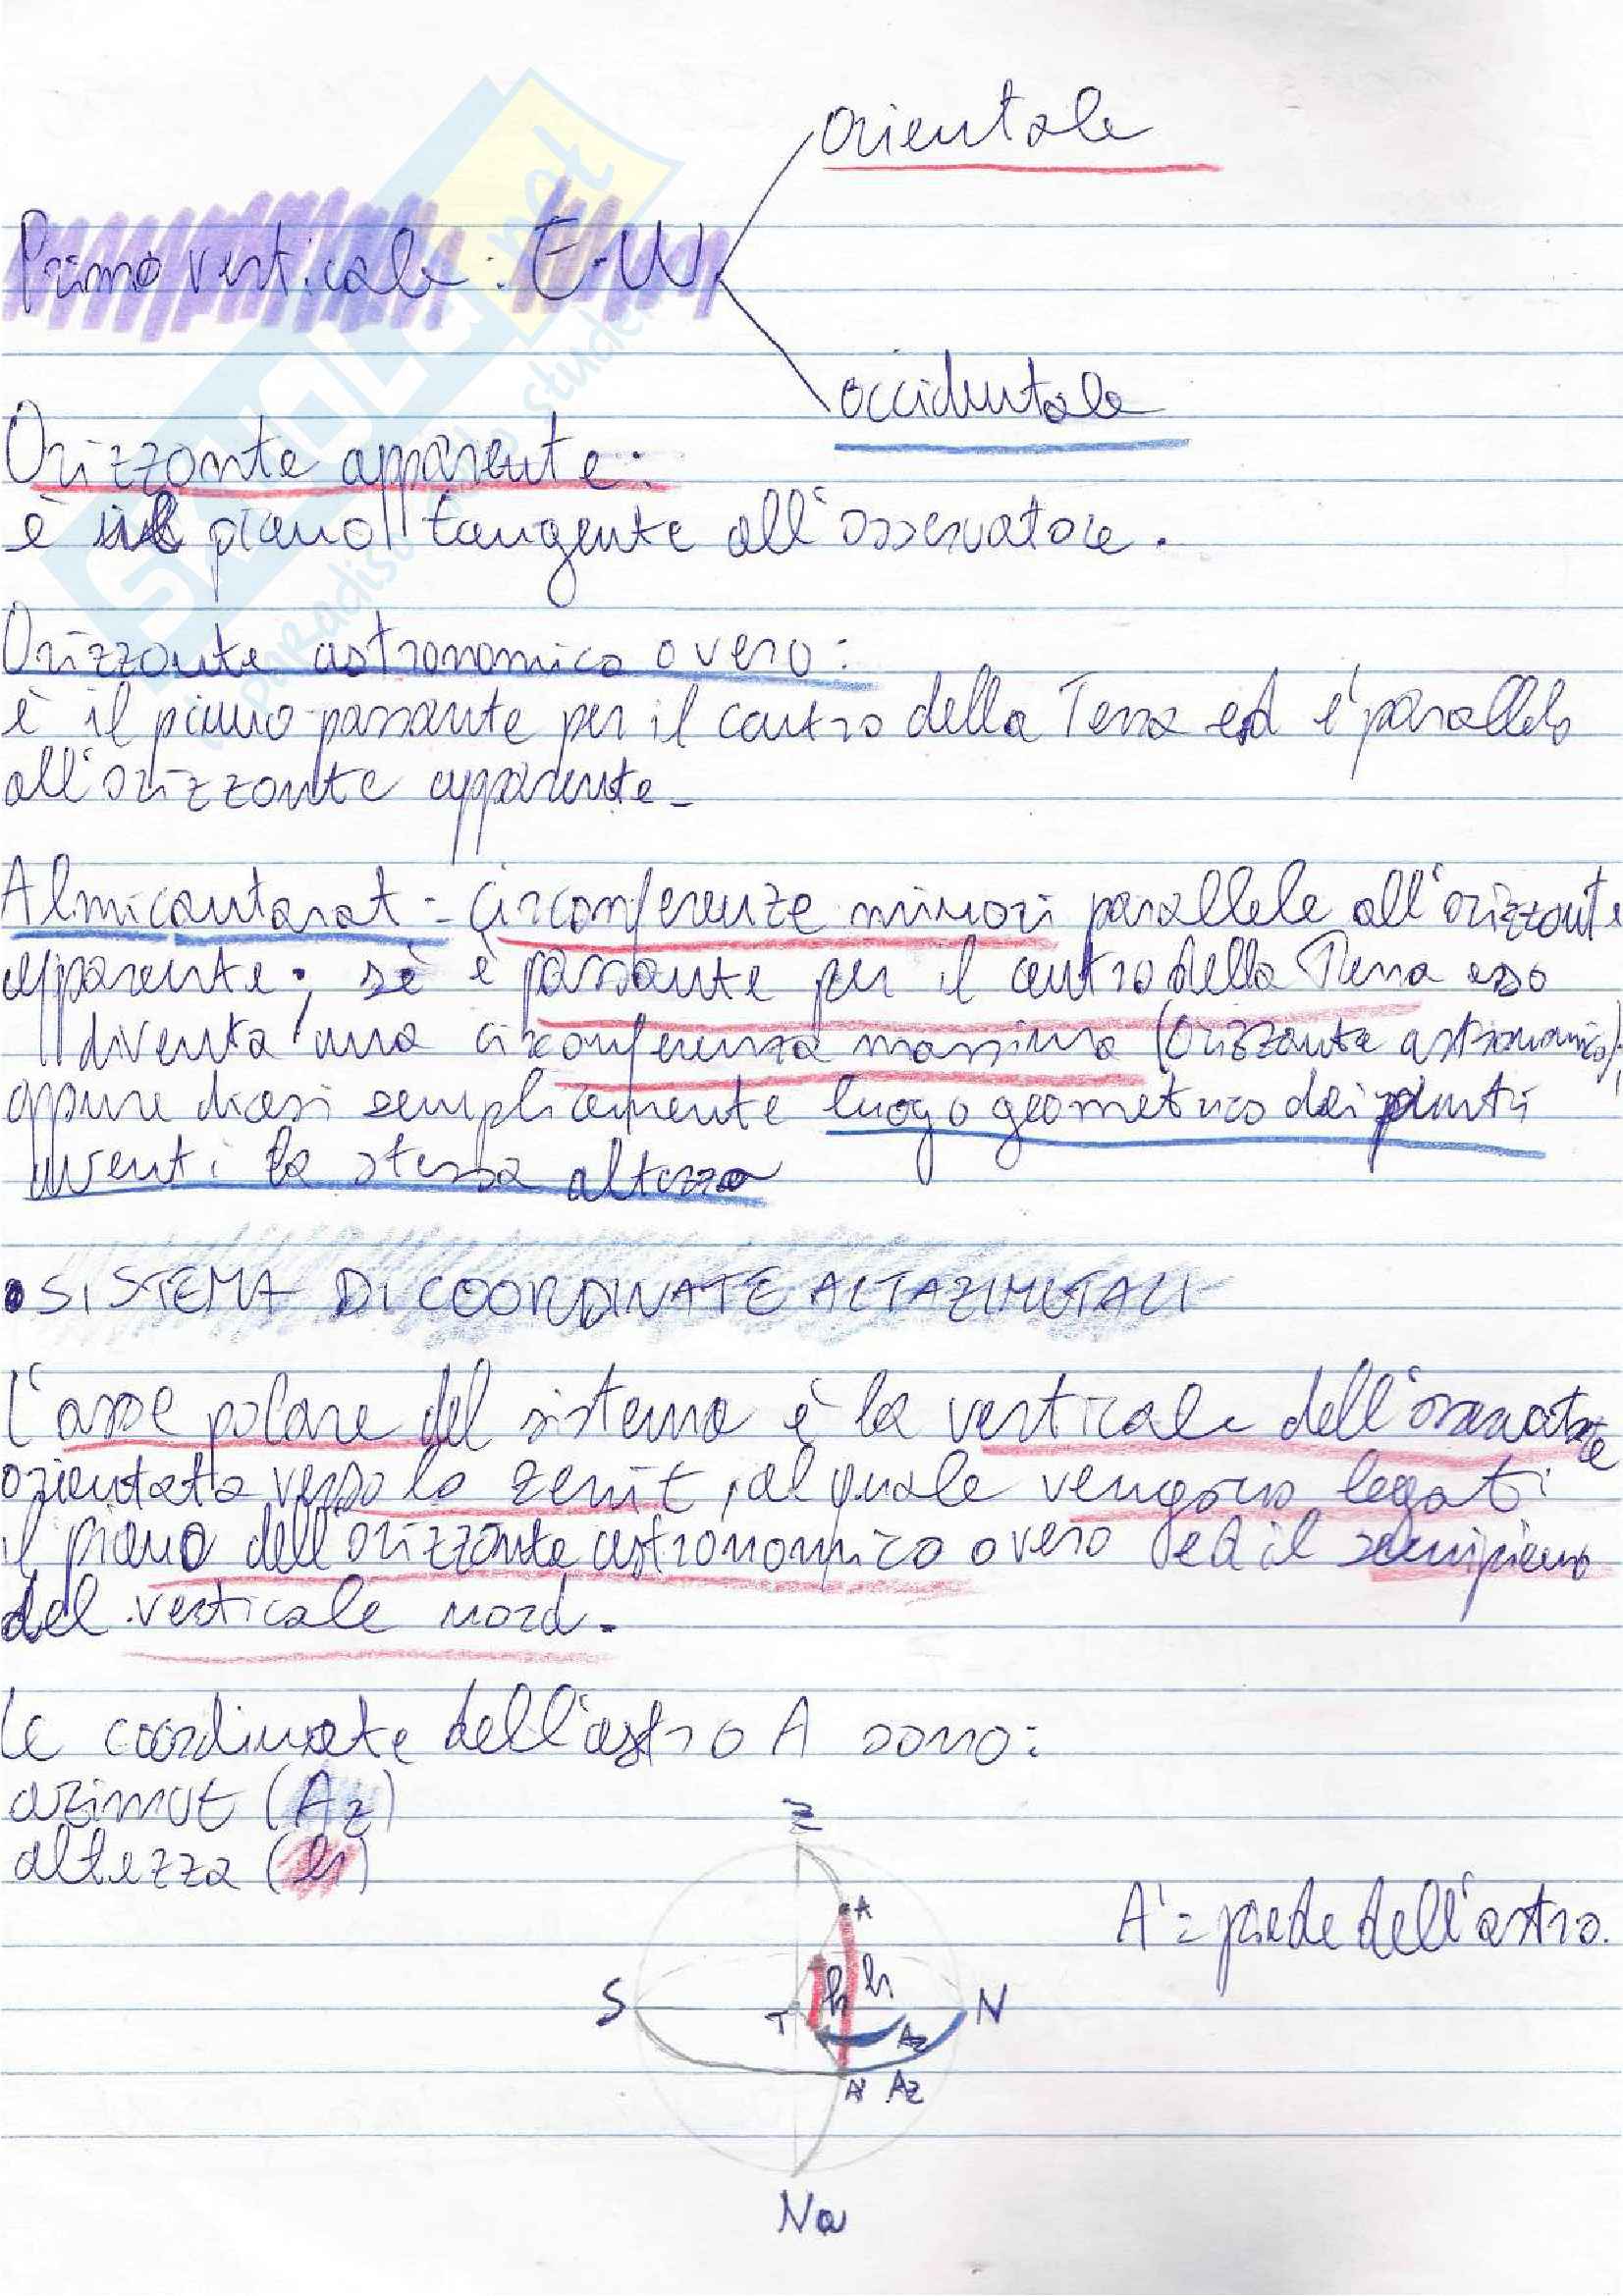 orientale
Primo verticale: E-W
occidentale
Orizzonte apparente:
è il piano tangente all'osservatore.
Orizzonte astronomico o vero:
è il piano passante per il centro della Terra ed è parallelo
all'orizzonte apparente-
Almicantarat = Circonferenze minori parallele all'orizzonte
apparente; sè è passante per il centro della Terra esso
diventa una circonferenza massima (orizzonte astronomico);
oppure dicasi semplicemente luogo geometrico dei punti
aventi la stessa altezza
• SISTEMA DI COORDINATE ALTAZIMUTALI
L'asse polare del sistema è la verticale dell'osservatore
orientata verso lo zenit, al quale vengono legati
il piano dell'orizzonte astronomico o vero ed il semipiano
del verticale nord.
Le coordinate dell'astro A sono:
azimut (Az)
altezza (h)
Z
A
A' = piede dell'astro.
S
h h
N
T
Az
A' Az
Na
SKUOLA.net
il paradiso dello studente